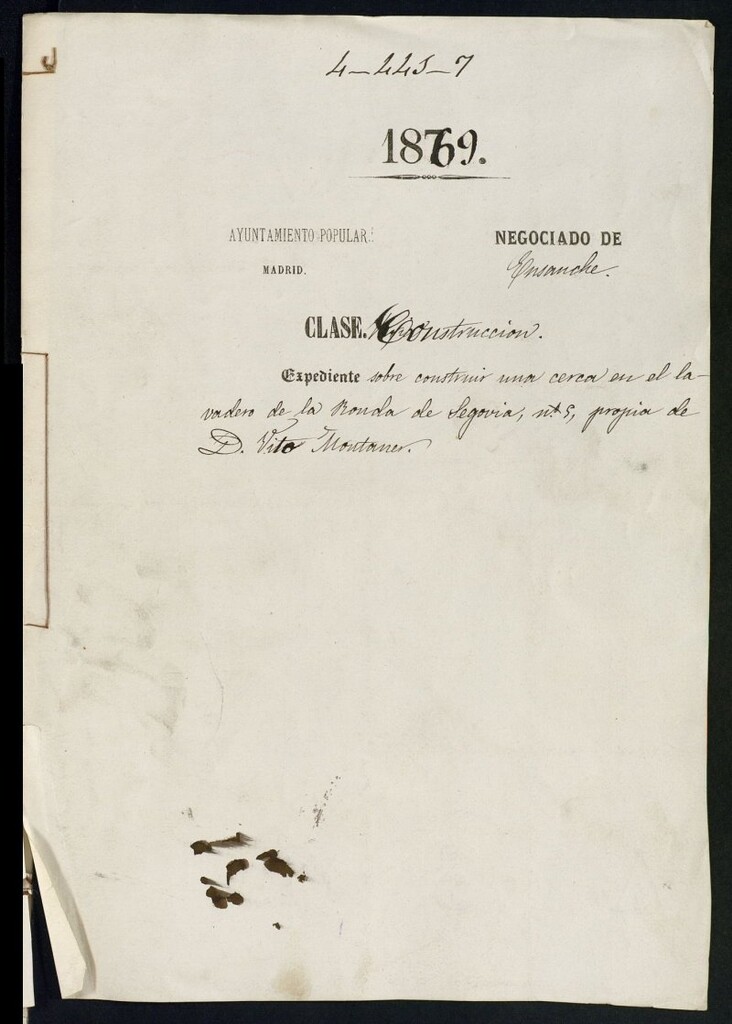 4-445-7
1869.
AYUNTAMIENTO POPULAR.
MADRID.
NEGOCIADO DE
Ensanche.
CLASE. Construccion.
Expediente sobre construir una cerca en el la-
vadero de la Ronda de Segovia, nº 5, propia de
D. Vito Montaner.